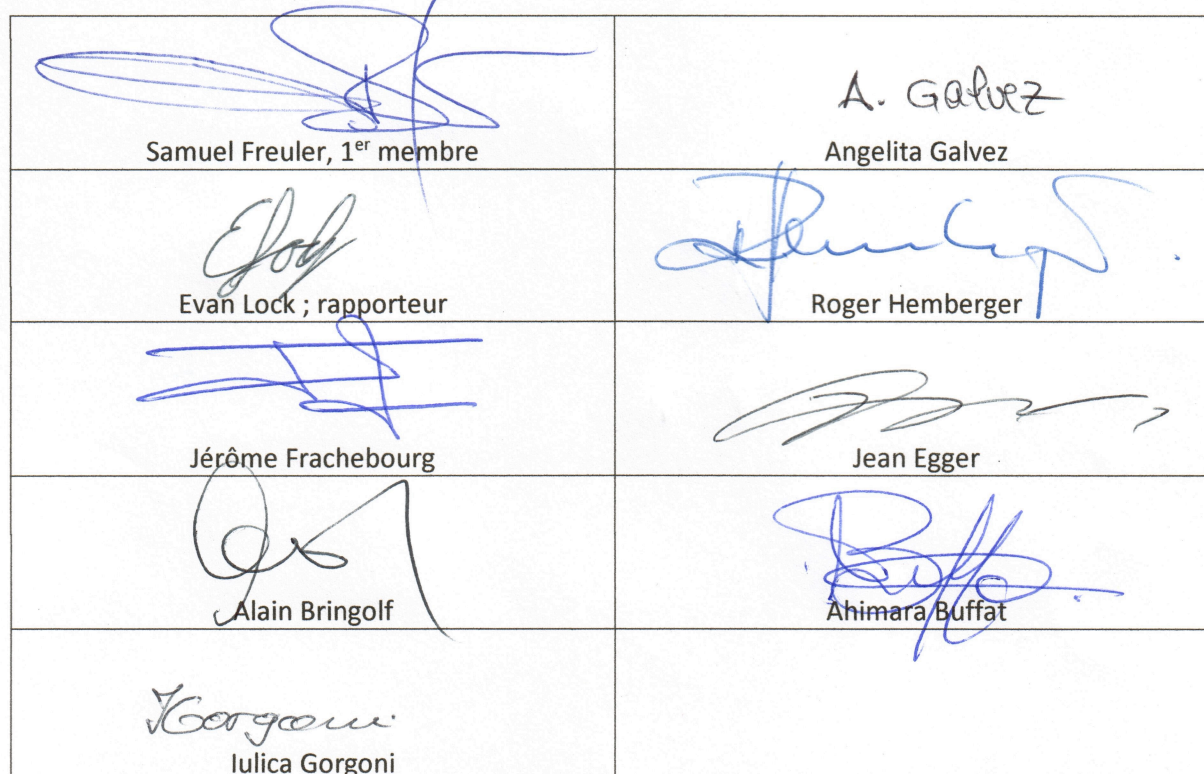 A. Galvez
Samuel Freuler, 1er membre
Angelita Galvez
Evan Lock ; rapporteur
Roger Hemberger
Jérôme Frachebourg
Jean Egger
Alain Bringolf
Ahimara Buffat
IGorgoni
Iulica Gorgoni